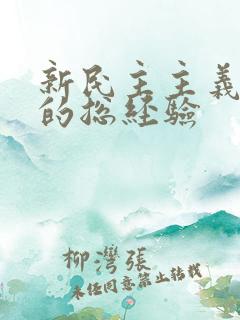 新民主主義
的总経验
柳灣張
未经同意禁止转载